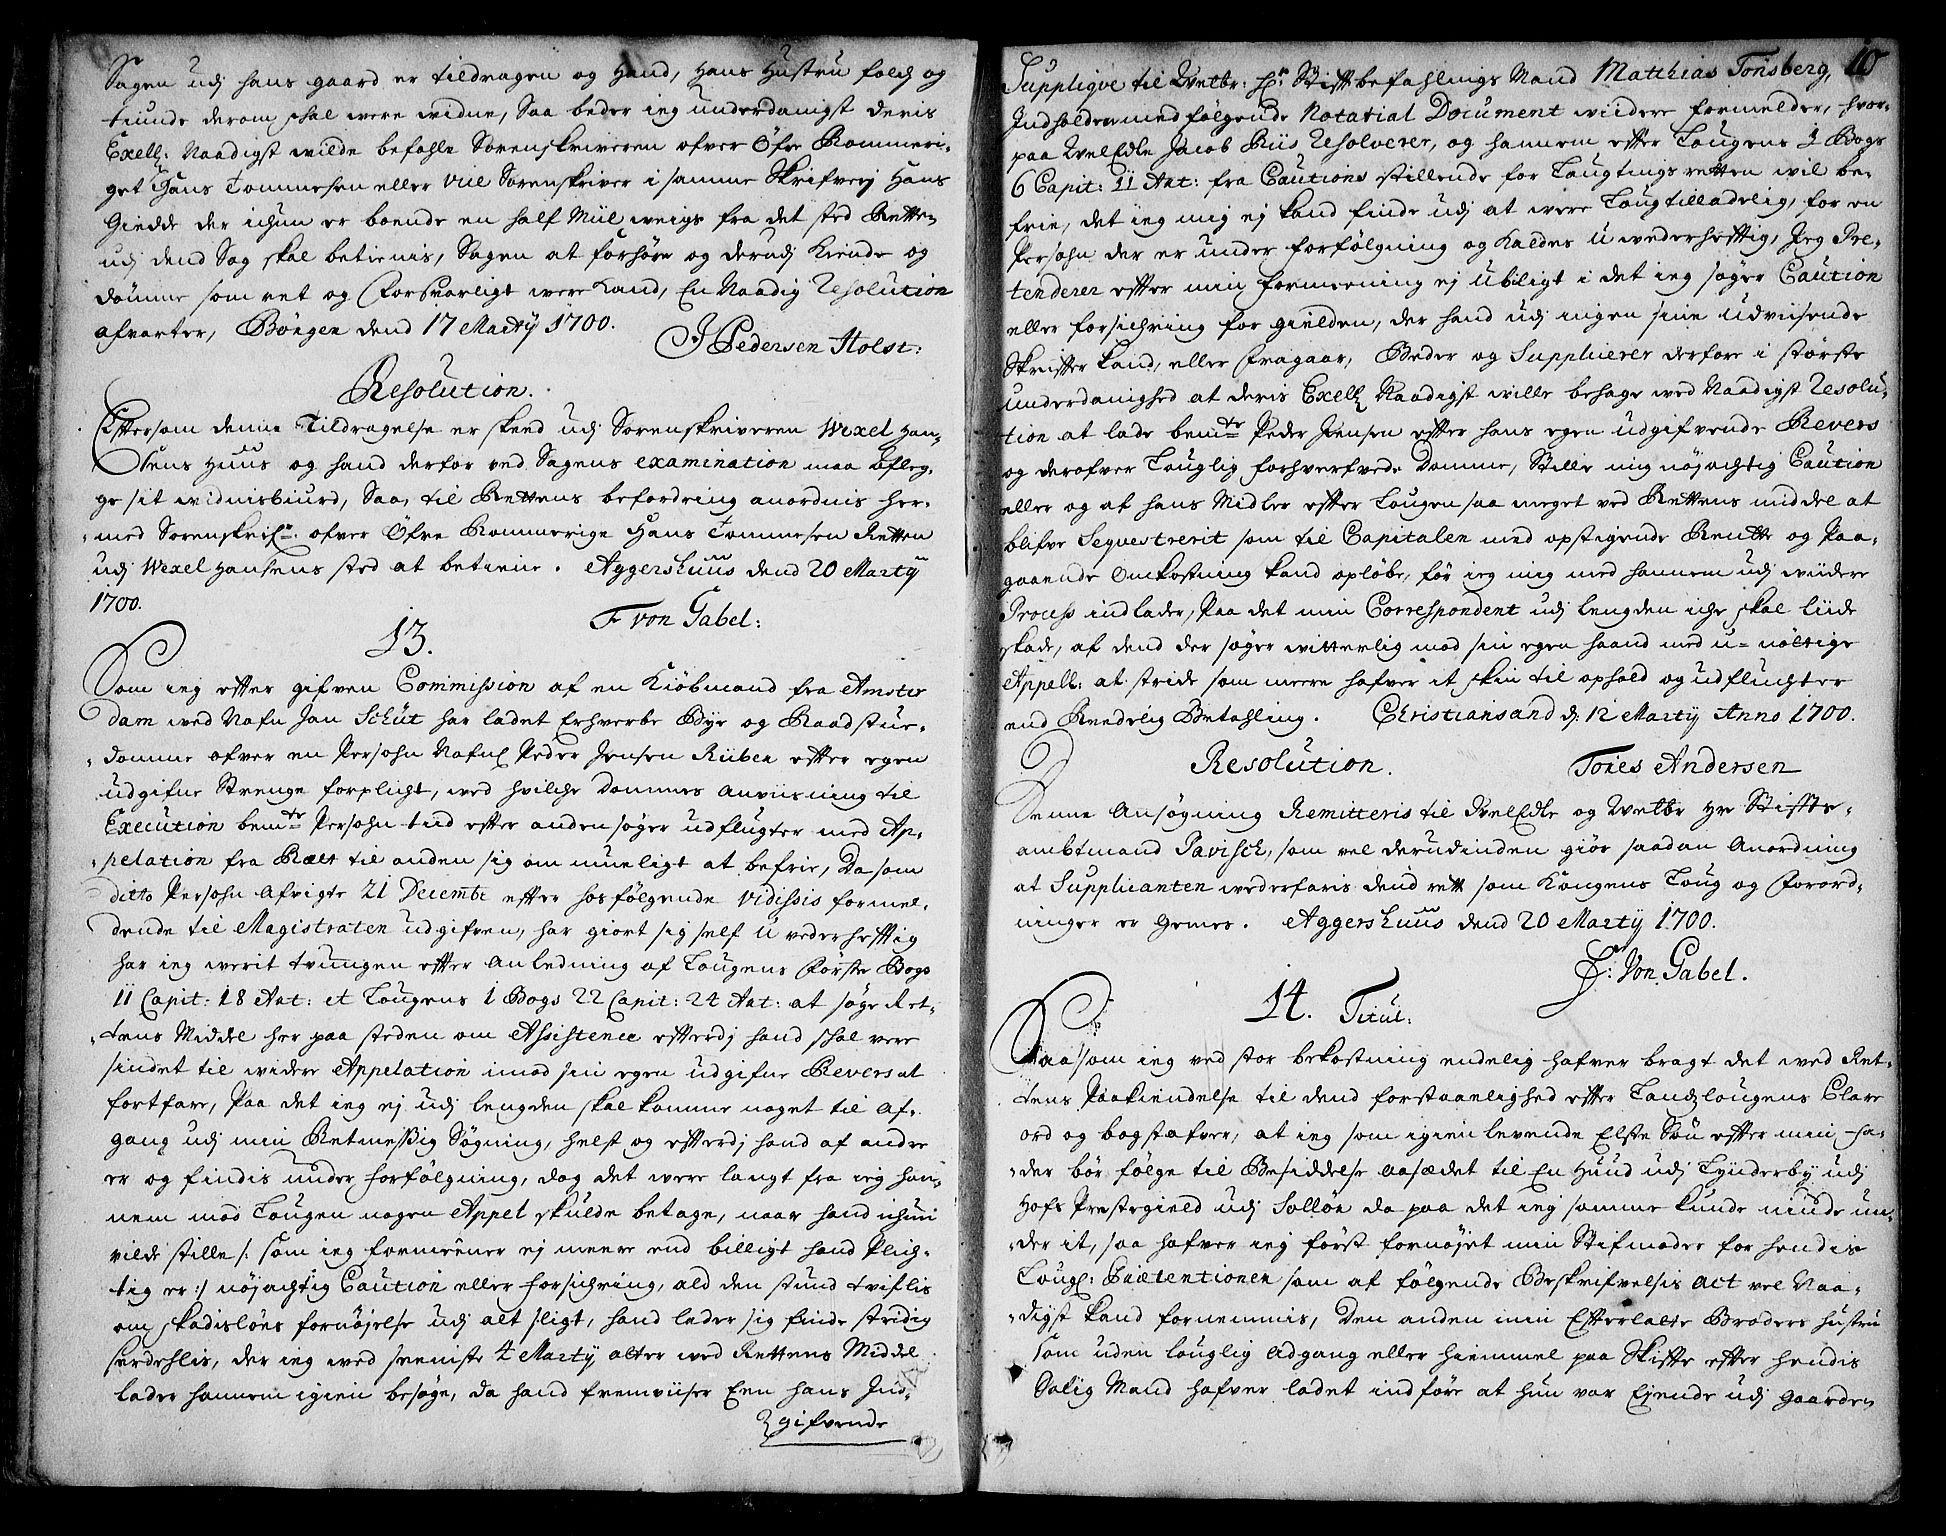 Sagen udj hans gaard er tildragen og Hand, Hans Hustru folch og
tiunde derom skal were vidne, Saa beder ieg underdanigst deris
Exell: Naadigst wilde befahle Sorenskriveren ofver Öfre Rommeri-
get Hans Tommesen eller vice Sorenskriver i samme Skrifverj Hans
Giedde der ichun er boende en half Miil weigs fra det sted Retten
udj dend Sag skal betienis, Sagen at forhöre og derudj Kiende og
dömme som ret og Forsvarligt were Kand, En Naadig Resolution
afvarter, Böngen dend 17 Martÿ 1700.
J Pedersen Holst:
Resolution.
Eftersom denne Tildragelse er skeed udj Sorenskriveren Wexel Han-
sens Huus og hand derfor ved Sagens examination maa afleg-
ge sit widnisbiurd, Saa, til Rettens befordring anordnis her-
med Sorenskrifr. ofver Öfre Rommerige Hans Tommesen Retten
udj Wexel Hansens sted at betiene. Aggershuus dend 20 Martÿ
1700.
F von Gabel:
13.
Som ieg efter gifven Commission af en Kiöbmand fra Amster
dam wed Nafn Jan Schüt har ladet Erhverbe Bye og Raadstue-
domme ofver en Persohn Nafnl Peder Jensen Riiber efter egen
udgifne Strenge forplicht, wed hvilche Dommes anviisning til
Execution bemte Persohn tid efter anden söger udflugter med Ap-
pelation fra Ræt til anden sig om mueligt at befrie, Da som
ditto Persohn afvigte 21 Decembr efter hosfölgende vidissis formel-
dende til Magistraten udgifven, har giort sig self U vederheftig
har ieg werit tvungen efter anledning af Lougens Förste Bogs
11 Capit: 18 Art: et Lougens 1 Bogs 22 Capit: 24 Art: at söge Ret-
tens Middel her paa steden om Assistence efterdj hand skal vere
sindet til widere Appelation imod sin egen udgifne Revers at
fortfare, Paa det ieg ej udj lengden skal komme noget til af-
gang udj min Retmessig Sögning, helst og efterdj hand af andre
er og findis under forfölgning, dog det were langt fra ieg han-
nem mod Lougen nogen Appel skulde betage, naar hand ichun
vilde stille /: som ieg formeener ej meere end billigt hand Plich-
tig er :/ nöjachtig Caution eller forsichring, ald den stund tviflis
om skadislöes fornöjelse udj alt sligt, hand lader sig finde stridig
serdehlis, der ieg wed seeniste 4 Martÿ atter wed Rettens Middel
lader hannem igien besöge, da hand fremviiser Een hans Ind-
gifvende
10
Supplique til Velbr: Hr: Stiftbefahlings Mand Matthias Tonsberg,
Indholden medfölgende Notarial Document wiidere formelder, hvor-
paa WelEdle Jacob Riis Resolverer, og hannem efter Lougens 1 Bogs
6 Capit: 11 Art: fra Cautions stillende for Laugtingsretten wil be-
frie, det ieg mig ej kand finde udj at were Lougtilladelig, for en
Persohn der er under forfölgning og kaldes U wederheftig, Jeg Pre-
tenderer efter min formeening ej Ubiligt i det ieg söger Caution
eller forsichring for gielden, der hand udj ingen sine udviisende
Skrifter kand, eller Fragaar, Beder og Supplicerer derfore i störste
underdanighed at deris Exell Naadigst wille behage wed Naadigst Resolu-
tion at lade bemte Peder Jensen efter hans egen udgifvende Revers
og derofver Louglig forhverfvede Domme, Stille mig nöjachtig Caution
eller og af hans Midler efter Lougen saa meget ved Rettens middel at
blifve Sequestrerit som til Capitalen med opstigende Rentte og Paa-
gaaende Omkostning kand oplöbe, för ieg mig med hannem udj wiidere
Process indlader, Paa det min Correspondent udj lengden iche skal liide
skade, af dend der söger witterlig mod sin egen haand med u-nöttige
Appell: at stride som meere hafver et skin til ophold og udfluchter
end Reedelig Betahling. Christiansand d: 12 Martÿ Anno 1700.
Resolution. Tores Andersen
Denne Ansögning Remitteris til WelEdle og Welbr Hr Stifts-
ambtmand Pavisch, som vel derudinden giör saadan Anordning
at Supplicanten wederfaris dend rett som Kongens Loug og Forord-
ninger er Gemes. Aggershuus dend 20 Martÿ 1700.
F: Von Gabel.
14. Titul:
Saasom ieg ved stor bekostning endelig hafver bragt det wed Ret-
tens Paakiendelse til dend forstaaelighed efter Landzlougens Clare
ord og bogstafver, at ieg som igien levende Elste Sön efter min Fa-
der bör fölge til Besiddelse aasædet til En Huud udj Tÿnderby udj
Hofs Prestegield udj Sollöer da paa det ieg samme kunde niude un-
der et, saa hafver ieg först fornöjet min Stifmoder for hendis
Lougl: Prætentioner som af fölgende Beskrifvelsis Act vel Naa-
digst kand fornemmis, Den anden min Efterlatte Broders hustru
som uden louglig adgang eller hiemmel paa Skiffte efter hendis
Salig Mand hafver ladet indföre at hun var Ejende udj gaarden